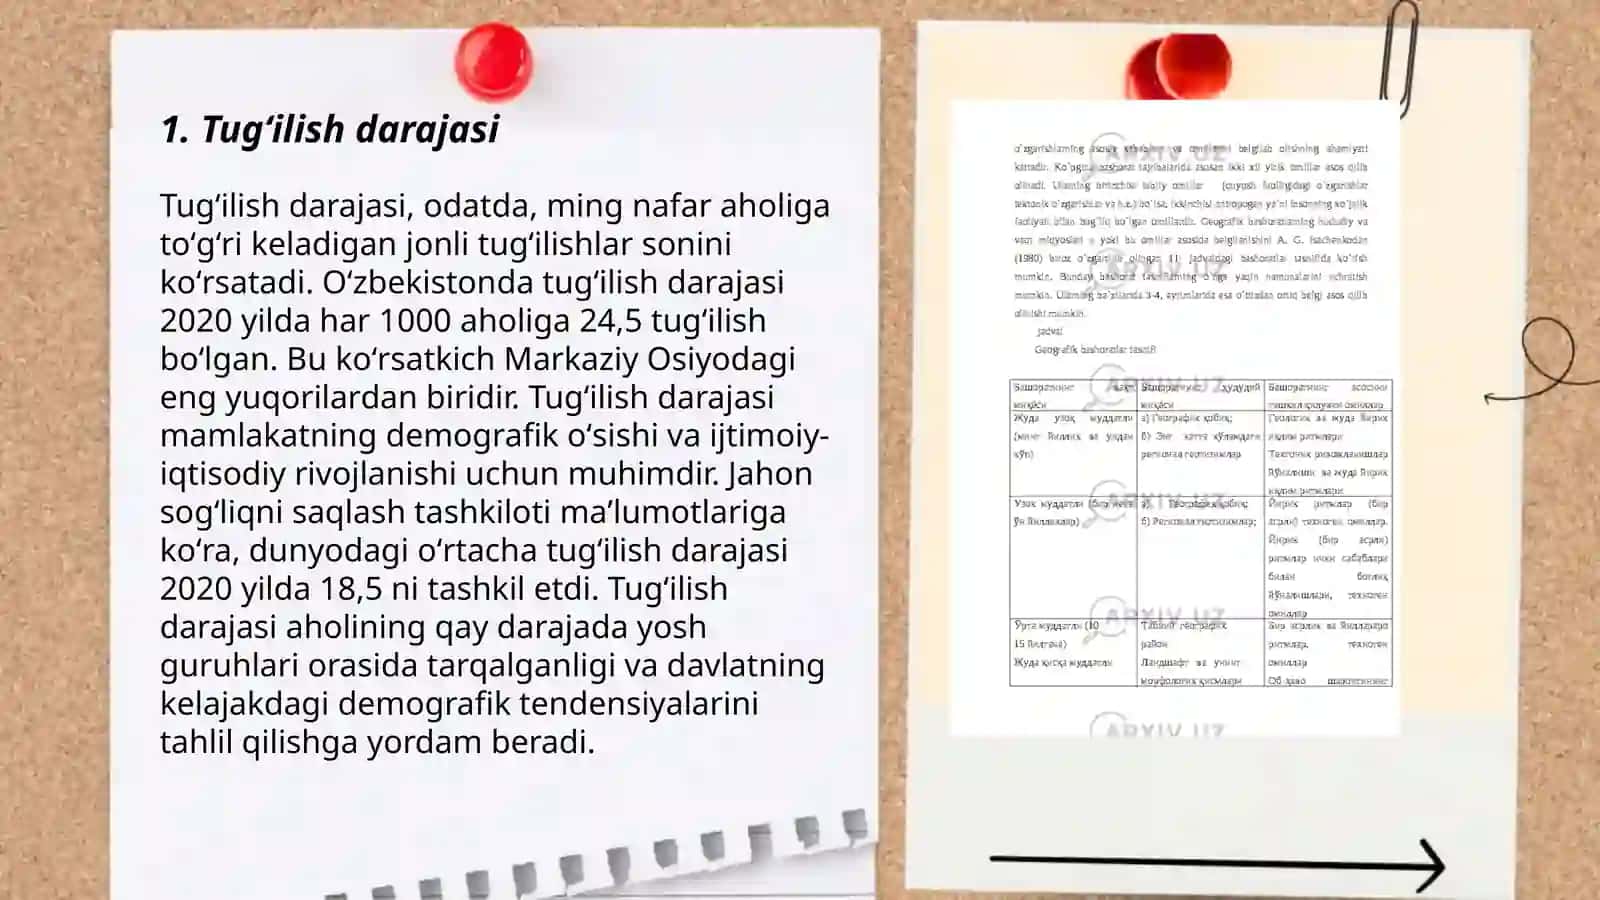 1. Tug‘ilish darajasi
Tug‘ilish darajasi, odatda, ming nafar aholiga
to‘g‘ri keladigan jonli tug‘ilishlar sonini
ko‘rsatadi. O‘zbekistonda tug‘ilish darajasi
2020 yilda har 1000 aholiga 24,5 tug‘ilish
bo‘lgan. Bu ko‘rsatkich Markaziy Osiyodagi
eng yuqorilardan biridir. Tug‘ilish darajasi
mamlakatning demografik o‘sishi va ijtimoiy-
iqtisodiy rivojlanishi uchun muhimdir. Jahon
sog‘liqni saqlash tashkiloti ma’lumotlariga
ko‘ra, dunyodagi o‘rtacha tug‘ilish darajasi
2020 yilda 18,5 ni tashkil etdi. Tug‘ilish
darajasi aholining qay darajada yosh
guruhlari orasida tarqalganligi va davlatning
kelajakdagi demografik tendensiyalarini
tahlil qilishga yordam beradi.
o`zgarishlarning asosiy va belgilab olishning ahamiyati
kattadir. asosan ikki xil yirik omillar asos qilib
olinadi. Ularning birinchisi tabiiy omillar (quyosh faolligidagi o`zgarishlar
tektonik o`zgarishlar va h.z.) bo`lsa, ikkinchisi antropogen ya`ni insonning xo`jalik
faoliyati bilan bog`liq bo`lgan omillardir. Geografik bashoratlarning hududiy va
vaqt miqyoslari u yoki bu omillar asosida belgilanishini A. G. Isachenkodan
(1980) biroz o`zgartirib olingan 11 jadvaldagi bashoratlar tasnifida ko`rish
mumkin. Bunday bashorat tasniflarning o`nga yaqin namunalarini uchratish
mumkin. Ularning ba`zilarida 3-4, ayrimlarida esa o`ntadan ortiq belgi asos qilib
olinishi mumkin.
jadval
Geografik bashoratlar tasnifi
Башоратнинг вақт миқёси
Башоратнинг ҳудудий миқёси
Башоратнинг асосини ташкил қилувчи омиллар
Жуда узоқ муддатли
(минг йиллик ва ундан
кўп)
а) Географик қобиқ;
б) Энг катта кўламдаги
регионал геотизимлар
Геологик ва жуда йирик
иқлим ритмлари
Тектоник ривожланишлар
йўналиши ва жуда йирик
иқлим ритмлари
Узоқ муддатли (бир неча
ўн йилликлар)
а) Географик қобиқ;
б) Регионал геотизимлар;
Йирик ритмлар (бир
асрли) техноген омиллар.
Йирик (бир асрли)
ритмлар ички сабаблари
билан боғлиқ
йўналишлари, техноген
омиллар
Ўрта муддатли (10
15 йилгача)
Жуда қисқа муддатли
Табиий географик
район
Ландшафт ва унинг
морфологик қисмлари
Бир асрлик ва йиллараро
ритмлар, техноген
омиллар
Об ҳаво шароитининг
ARXIV.UZ
ARXIV.UZ
ARXIV.UZ
ARXIV.UZ
ARXIV.UZ
ARXIV.UZ